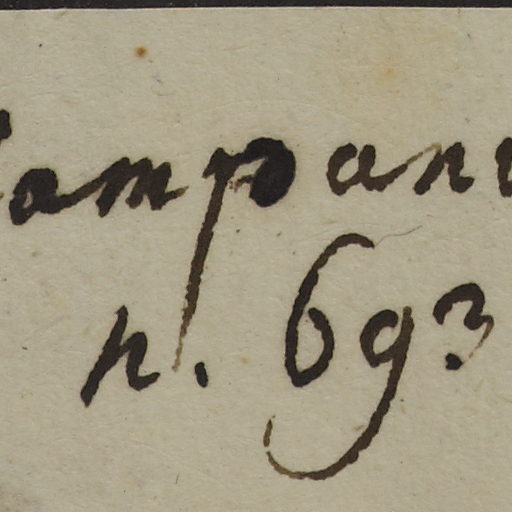 Campanu
n. 693